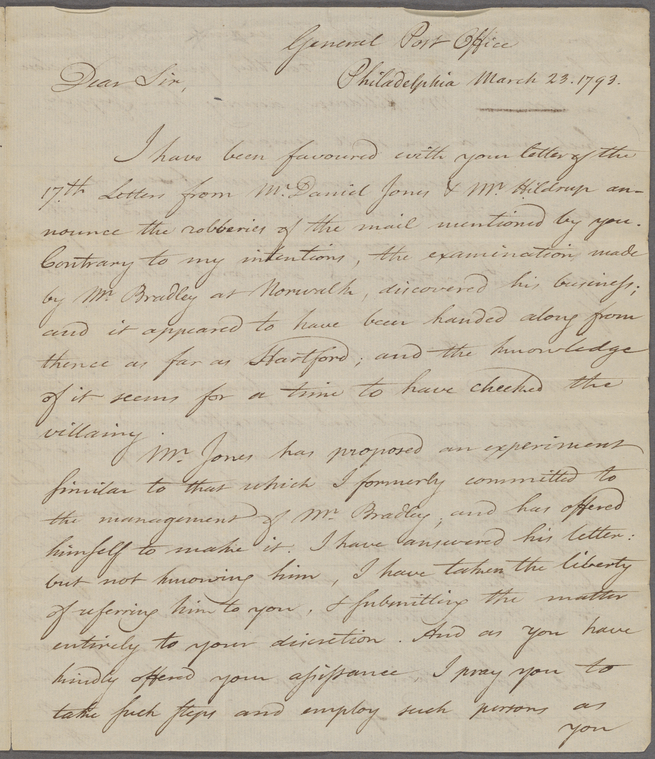 General Post Office
Dear Sir,
Philadelphia March 23. 1793.
I have been favoured with your letter of the
17th. Letters from Mr. Daniel Jones & Mr. Hildrup an-
nounce the robberies of the mail mentioned by you.
Contrary to my intentions, the examination made
by Mr. Bradley at Norwalk, discovered his business;
and it appeared to have been handed along from
thence as far as Hartford; and the knowledge
of it seems for a time to have checked the
villainy.
Mr. Jones has proposed an experiment
similar to that which I formerly committed to
the management of Mr. Bradley, and has offered
himself to make it. I have answered his letter:
but not knowing him, I have taken the liberty
of referring him to you, & submitting the matter
entirely to your discretion. And as you have
kindly offered your assistance, I pray you to
take such steps and employ such persons as
you